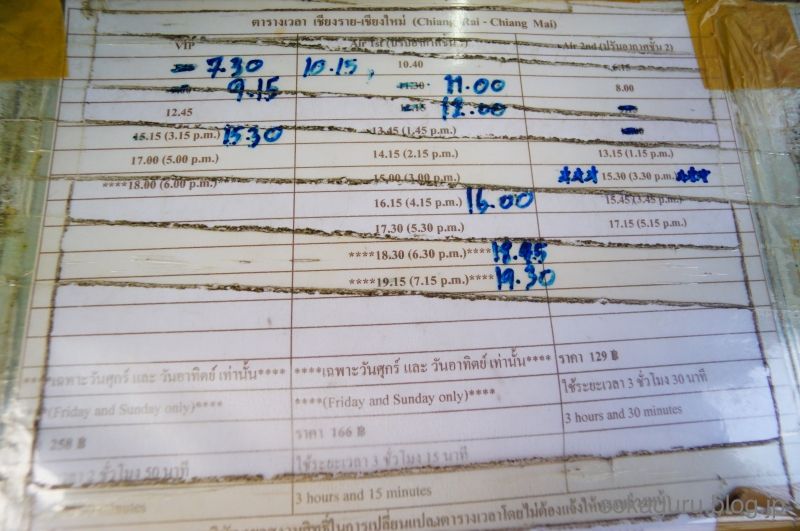 ตารางเวลา เชียงราย-เชียงใหม่ (Chiang Rai - Chiang Mai)
VIP Air 1st (ปรับอากาศชั้น Air 2nd (ปรับอากาศชั้น 2)
7.30 10.15, 10.40 6.15
9.15 11.30 11.00 8.00
12.45 12.15 12.00
15.15 (3.15 p.m.) 15.30 13.45 (1.45 p.m.)
17.00 (5.00 p.m.) 14.15 (2.15 p.m.) 13.15 (1.15 p.m.)
****18.00 (6.00 p.m.) 15.00 (3.00 p.m.) 15.30 (3.30 p.m.)
16.15 (4.15 p.m.) 16.00 15.45 (3.45 p.m.)
17.30 (5.30 p.m.) 17.15 (5.15 p.m.)
****18.30 (6.30 p.m.)**** 18.45
****19.15 (7.15 p.m.)**** 19.30
****เฉพาะวันศุกร์ และ วันอาทิตย์ เท่านั้น**** ****เฉพาะวันศุกร์ และ วันอาทิตย์ เท่านั้น**** ราคา 129 ฿
(Friday and Sunday only)**** ****(Friday and Sunday only)**** ใช้ระยะเวลา 3 ชั่วโมง 30 นาที
258 ฿ ราคา 166 ฿ 3 hours and 30 minutes
2 ชั่วโมง 50 นาที ใช้ระยะเวลา 3 ชั่วโมง 15 นาที
minutes 3 hours and 15 minutes
ในการเปลี่ยนแปลงตารางเวลาโดยไม่ต้องแจ้งให้
ookaduru.blog.jp